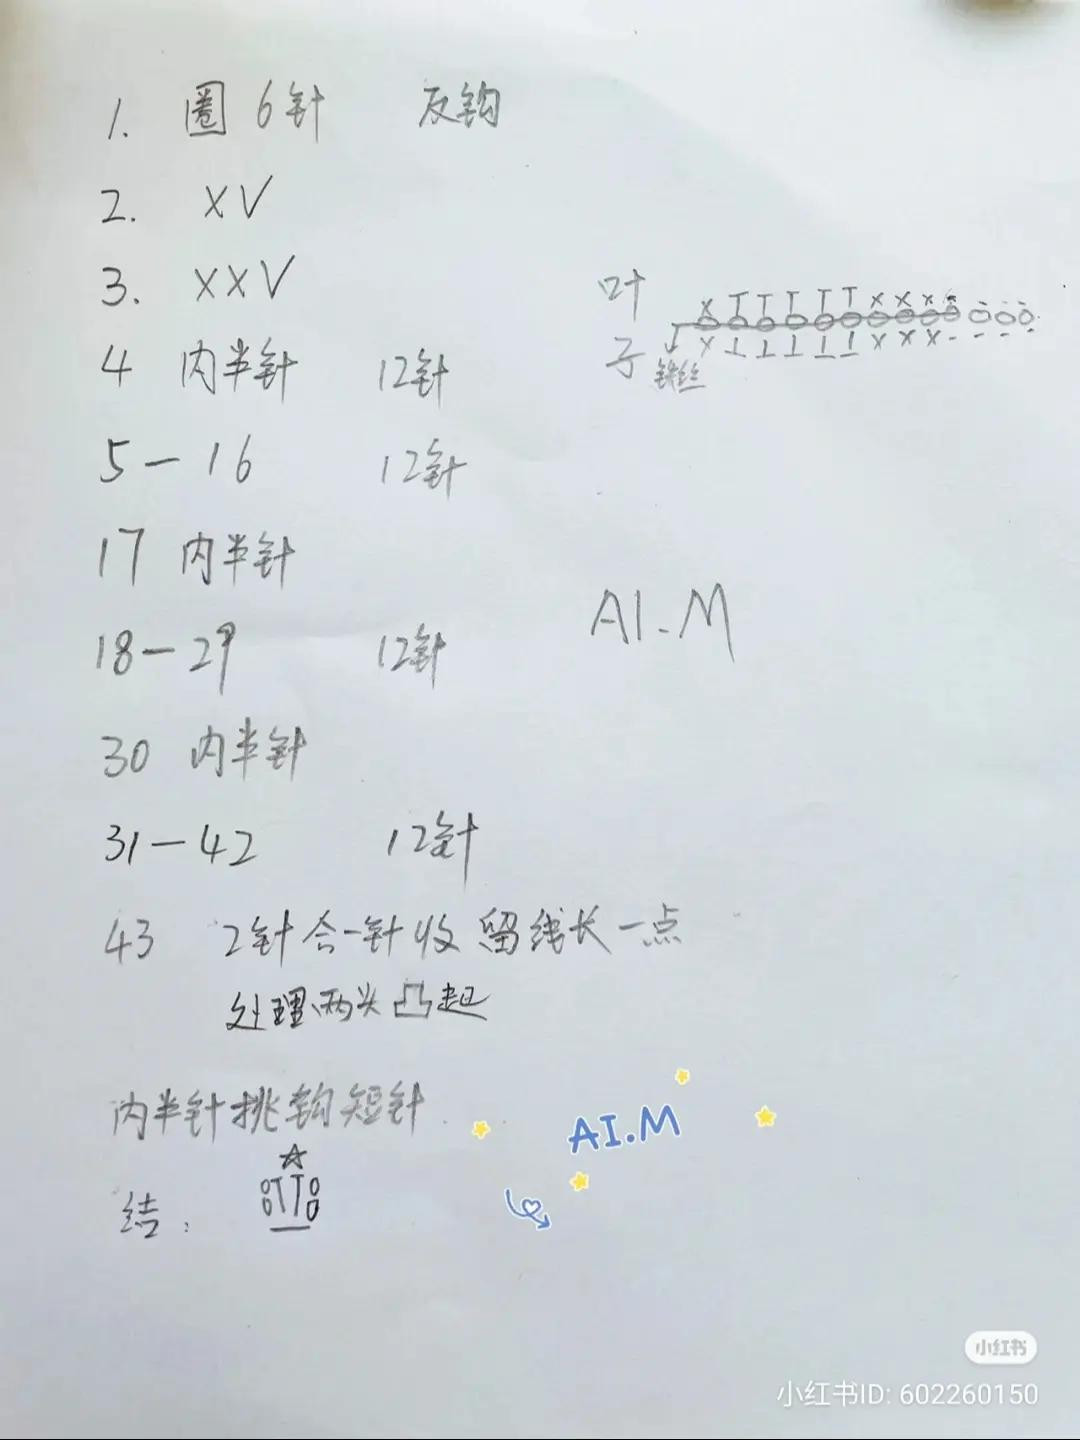 1. 圈 6针 反钩
2. XV
3. XXV
4 内半针 12针
5-16 12针
17 内半针
18-29 12针
30 内半针
31-42 12针
43 2针合一针收 留线长一点
处理两头凸起
内半针挑钩短针
结:
叶子
X T T T T T X X X
X T T T T T X X X
铁丝
AI.M
AI.M
小红书
小红书ID: 602260150